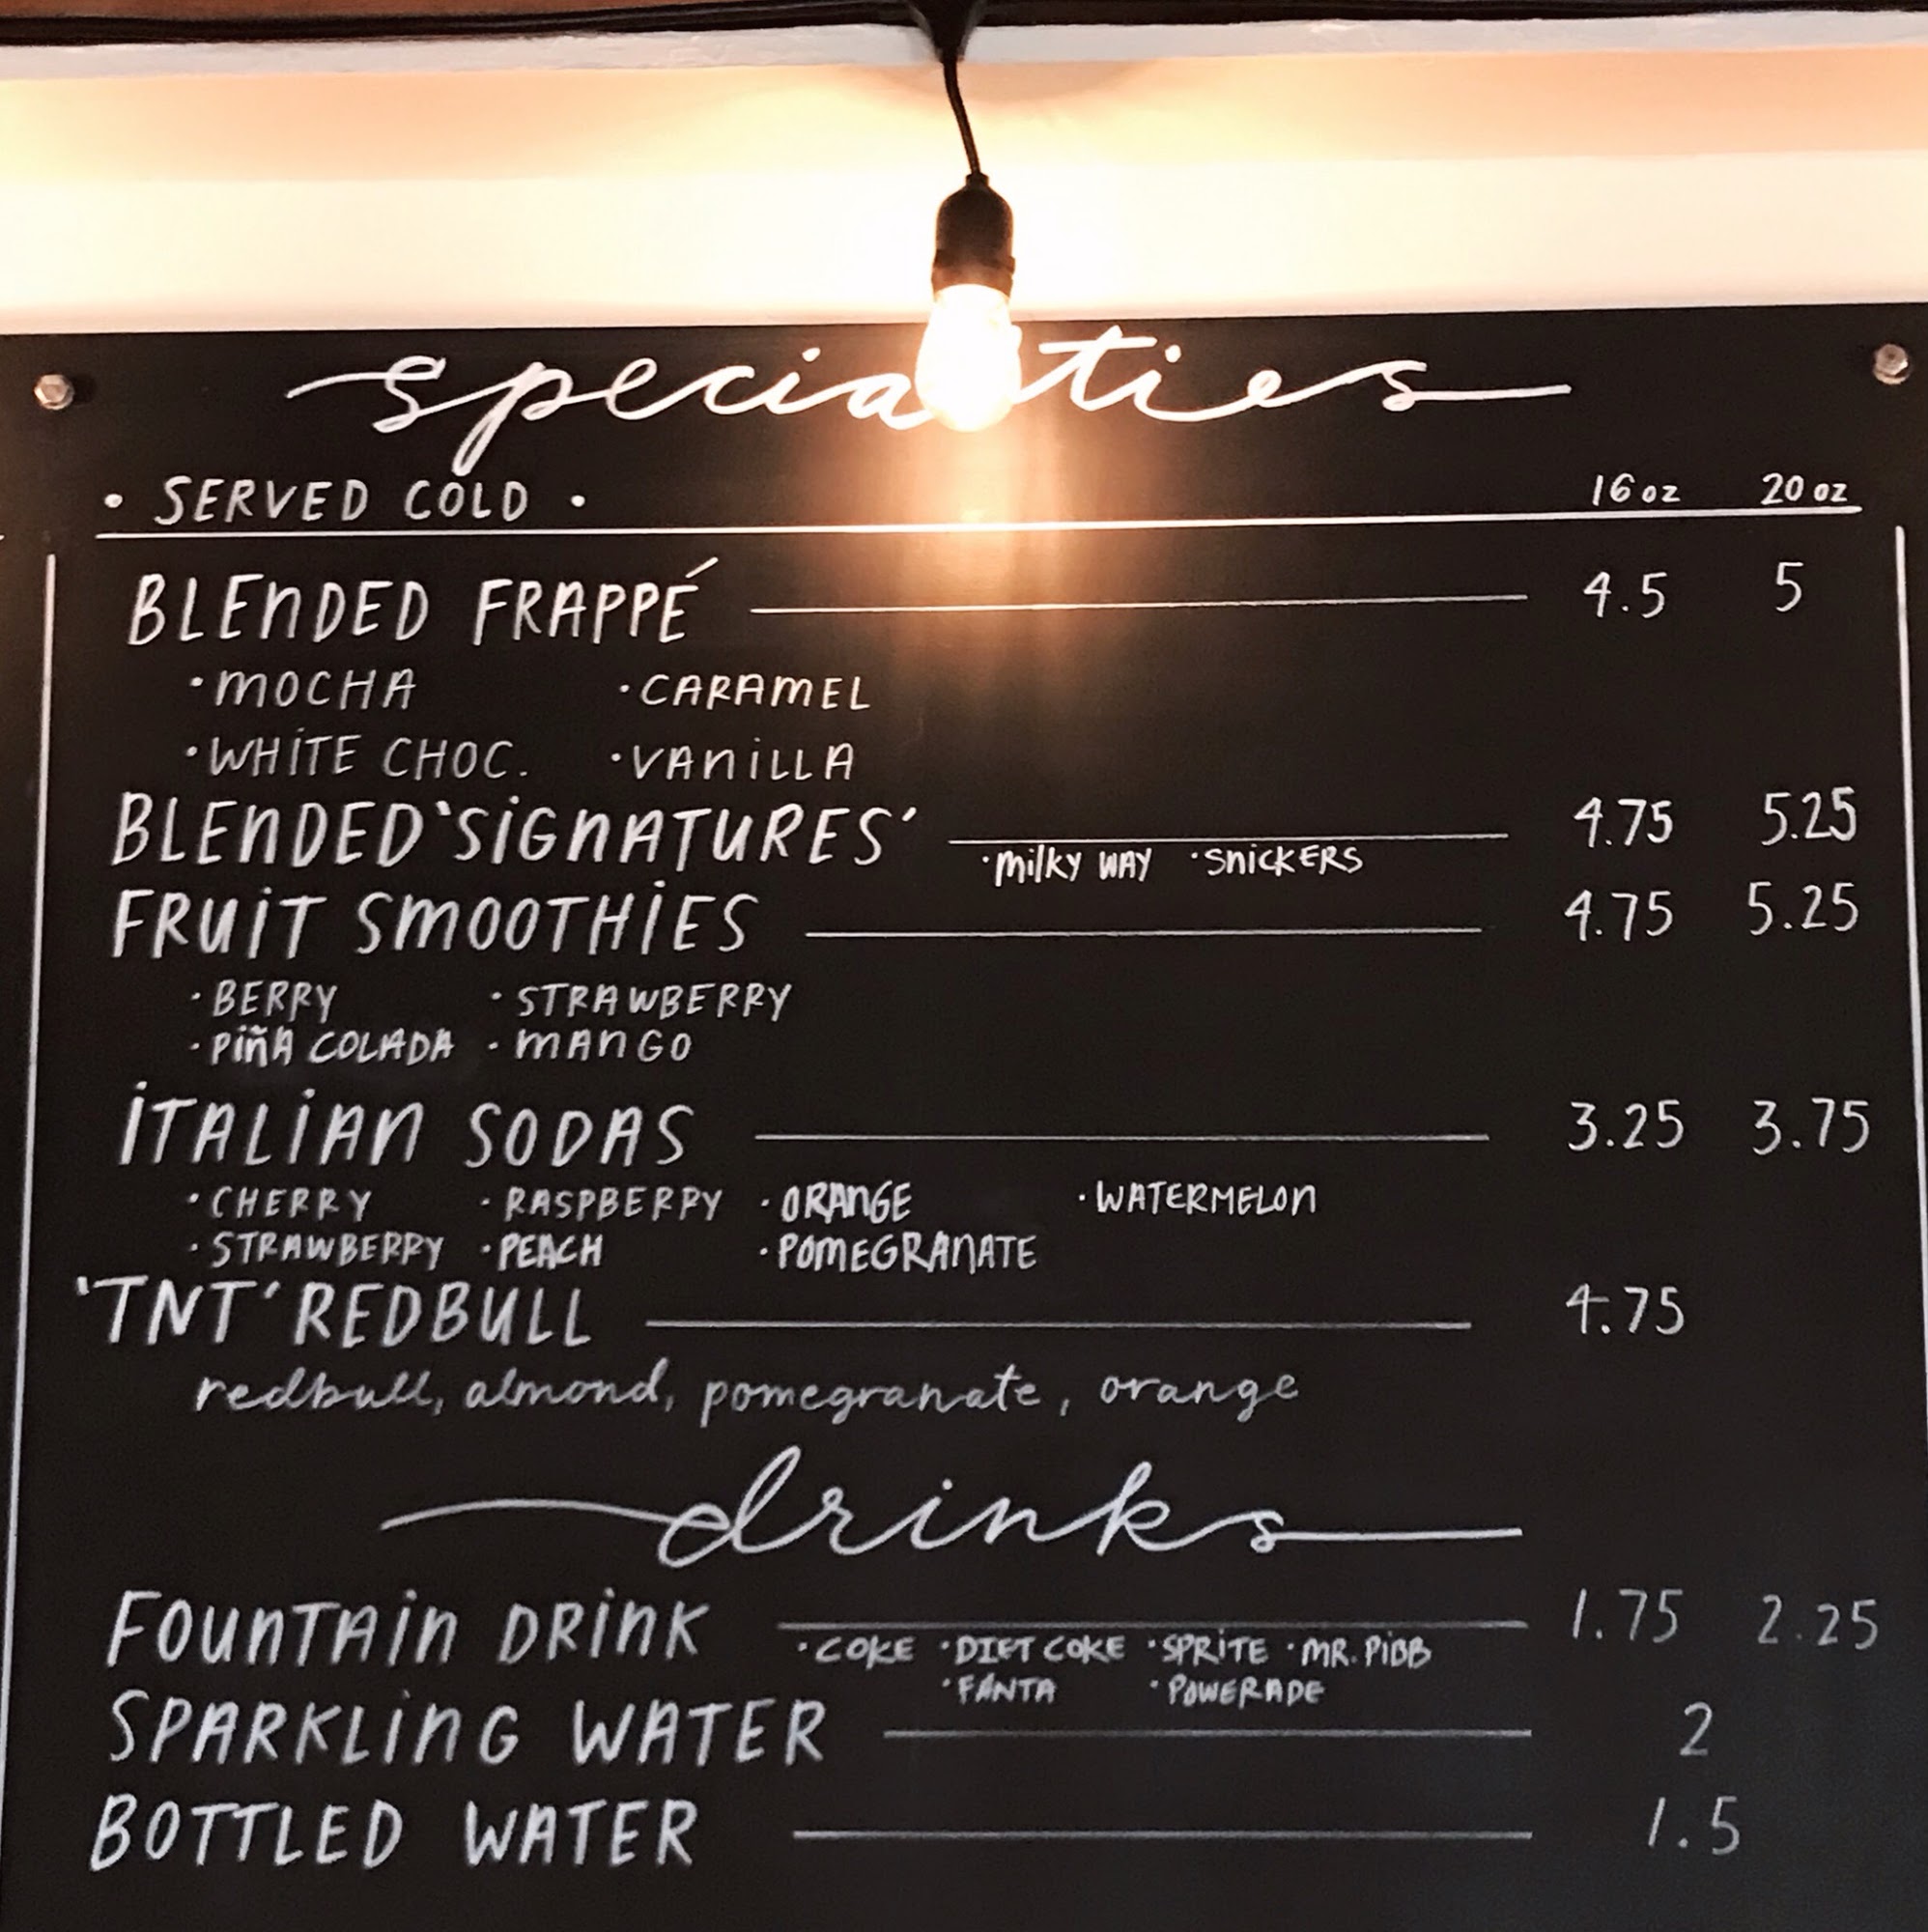 specialties
• SERVED COLD • 16 oz 20 oz
BLENDED FRAPPÉ 4.5 5
•MOCHA •CARAMEL
•WHITE CHOC. •VANILLA
BLENDED 'SIGNATURES' 4.75 5.25
•MILKY WAY •SNICKERS
FRUIT SMOOTHIES 4.75 5.25
•BERRY •STRAWBERRY
•PIÑA COLADA •MANGO
ITALIAN SODAS 3.25 3.75
•CHERRY •RASPBERRY •ORANGE •WATERMELON
•STRAWBERRY •PEACH •POMEGRANATE
'TNT' REDBULL 4.75
redbull, almond, pomegranate, orange
drinks
FOUNTAIN DRINK 1.75 2.25
•COKE •DIET COKE •SPRITE •MR. PIBB
•FANTA •POWERADE
SPARKLING WATER 2
BOTTLED WATER 1.5